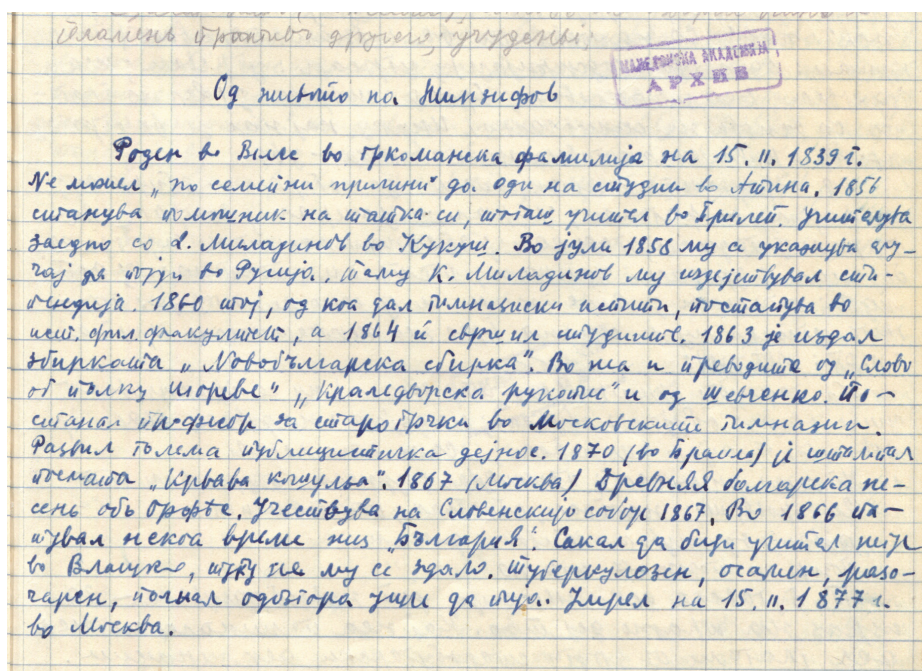 пламень противъ другего, учудены,
МАКЕДОНСКА АКАДЕМИЈА
АРХИВ
Од живото на Жинзифов
Роден во Велес во гркоманска фамилија на 15. II. 1839 г.
Не можел „по семејни причини" да оди на студии во Атина. 1856
станува помошник на татка си, тогаш учител во Прилеп. Учителува
заедно со Д. Миладинов во Кукуш. Во јули 1858 му се укажува слу-
чај да појди во Русија. Таму К. Миладинов му издејствувал сти-
пендија. 1860 тој, од коа дал гимназиски испити, постапува во
ист. фил. факултет, а 1864 и свршил студиите. 1863 је издал
збирката „Новобългарска сбирка". Во неа и преводите од „Слово
об пълку Игореве" „Краледворска рукопис" и од Шевченко. По-
станал професор за старогрчки во Московските гимназии.
Развил голема публицистичка дејнос. 1870 (во Браила) је
поемата „Кървава кошуля". 1867 (Москва) Древняя болгарска пе-
сень объ Орфѣе. Учествува на Словенскијо собор 1867. Во 1866 па-
тувал некоа време низ „България". Сакал да биди учител негде
во Влашко, туку не му се здало. Туберкулозен, осамен, разо-
чарен, полнал одозгора уште да пија. Умрел на 15. II. 1877 г.
во Москва.